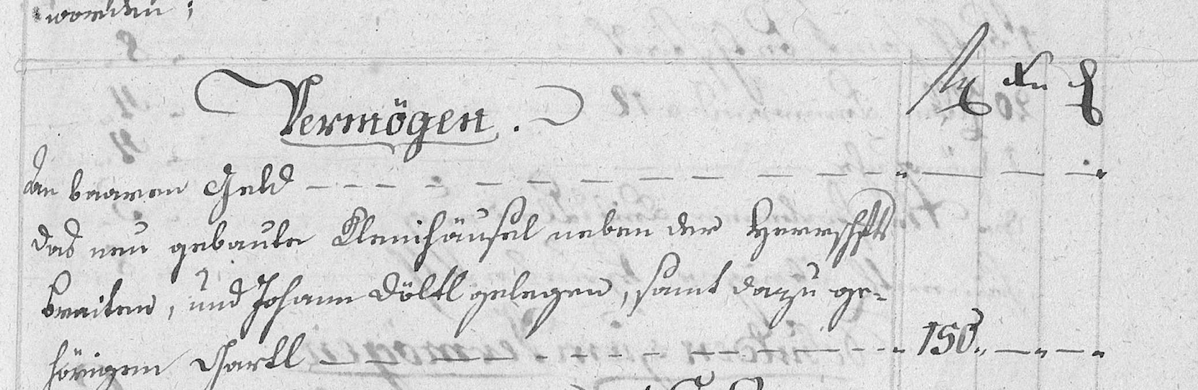 worden;
Vermögen. fl xr ₰
An baaren Geld — — — — — — — — — — „ — — „
das neu gebaute Kleinhäusel neben der Herrschfts
braiten, und Johann Döltl gelegen, samt dazu ge-
hörigen Gartl — — — — — — — — — — 150„ — „ — „